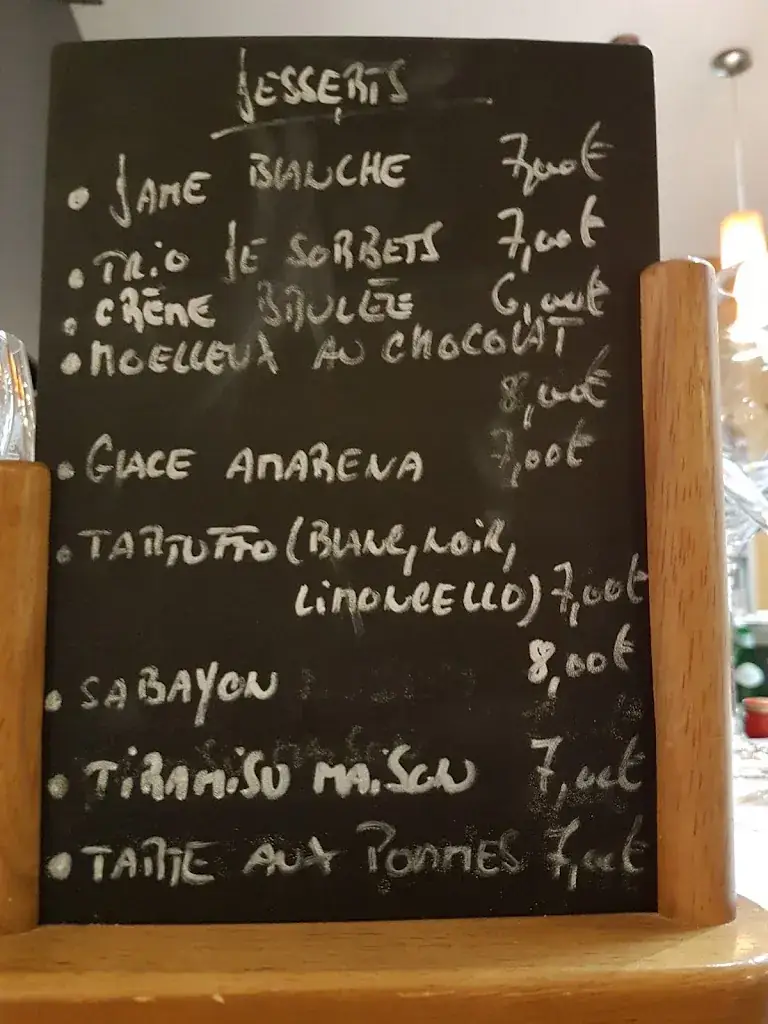 DESSERTS
• DAME BLANCHE 7,00€
• TRIO DE SORBETS 7,00€
• CRÈME BRULÉE 6,00€
• MOELLEUX AU CHOCOLAT
8,00€
• GLACE AMARENA 7,00€
• TARTUFFO (BLANC, NOIR,
LIMONCELLO) 7,00€
• SABAYON 8,00€
• TIRAMISU MAISON 7,00€
• TARTE AUX POMMES 7,00€